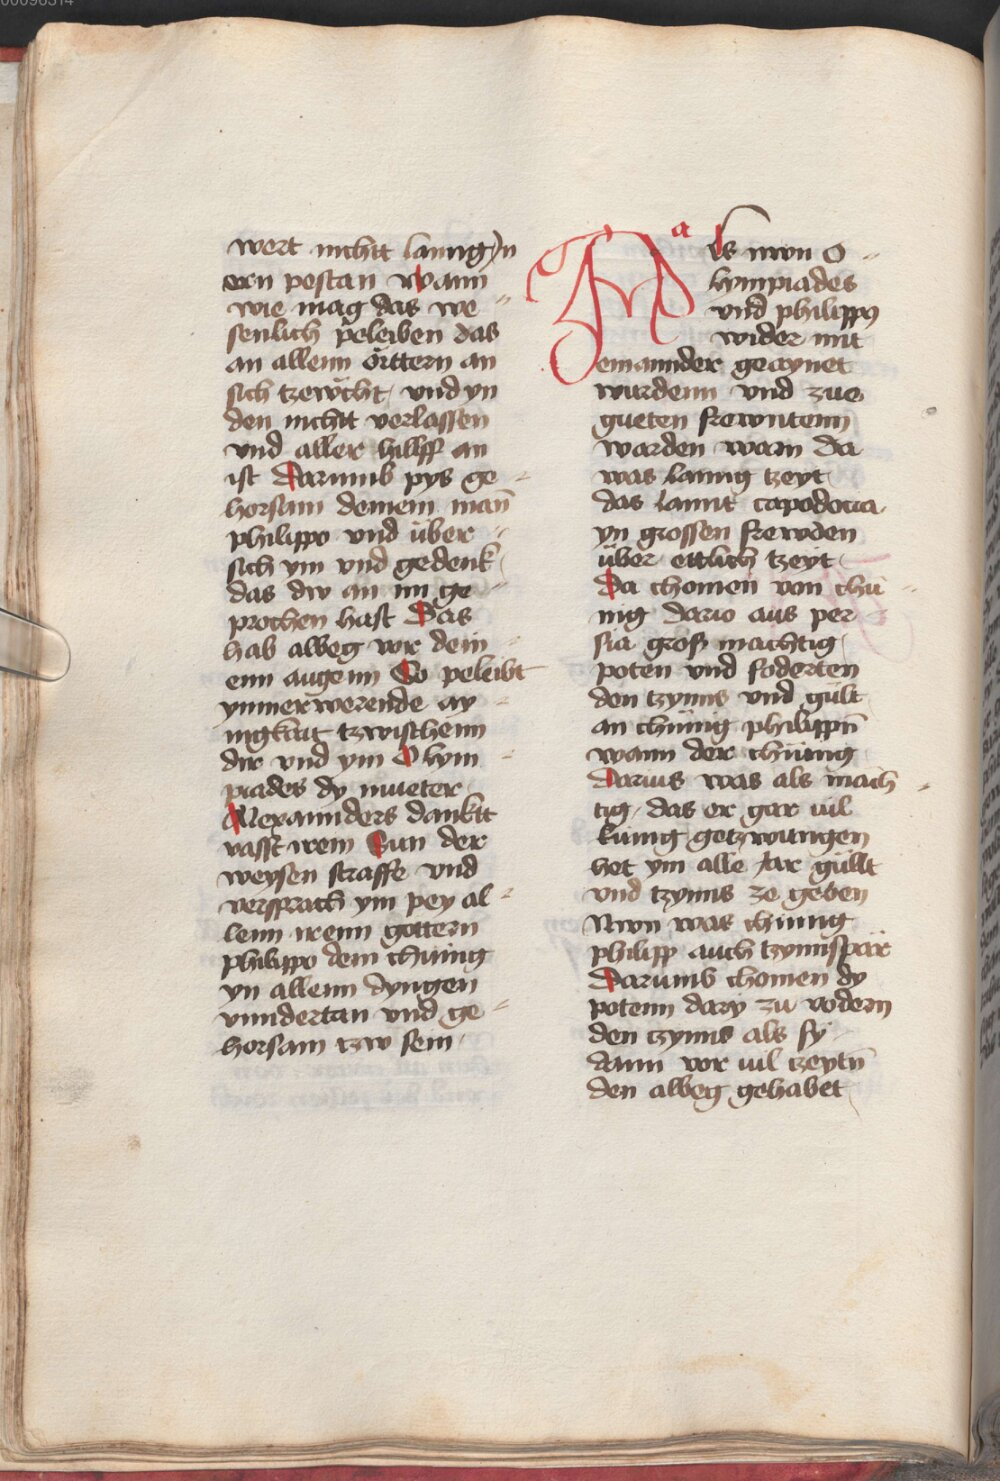 wert nichtt lanng yn
ern pestan wann
wie mag das we⸗
senlich peleiben das
an allenn örttern an
sich tzewcht und yn
den nichtt verlassen
vnd aller hilff an
ist darumb pys ge⸗
horsam deinem man̄
philippo vnd über⸗
sich ym vnd gedenk
das dw an im ge⸗
prochen hast Das
hab albeg vor dein⸗
enn augenn So peleibt
ymmerwerende ay⸗
nigkait tzwischenn
dir vnd ym Olym⸗
piades dy mueter
Allexannders dankt
vasst irem Sun der
weysen straffe vnd
versprach ym pey al⸗
lenn irenn gottern
philippo dem chünig
yn allenn dyngen
vnndertan vnd ge⸗
horsam tzw sein
a
Als nwn O⸗
lympiades
vnd philippus
wider mit
einannder geaynet
wurdenn vnd zue
gueten frewntenn
warden warn da
was lanng tzeyt
das lannt capodocia
yn grossen frewden
über ettlich tzeyt
Da chomen von chü⸗
nig dario aus per⸗
sia gross machtig
poten vnd foderten
den tzynns vnd gült
an chünig philippn̄
wann der chünig
Darius was als mäch⸗
tig das er gar uil
künig getzwungen
het ym alle Jar güllt
vnd tzynns ze geben
Nwn was chünig
philipp auch tzynnspär
Darumb chomen dy
potenn dary zu vodern
den tzynns als sy
dann vor uil tzeytn̄
den albeg gehabet